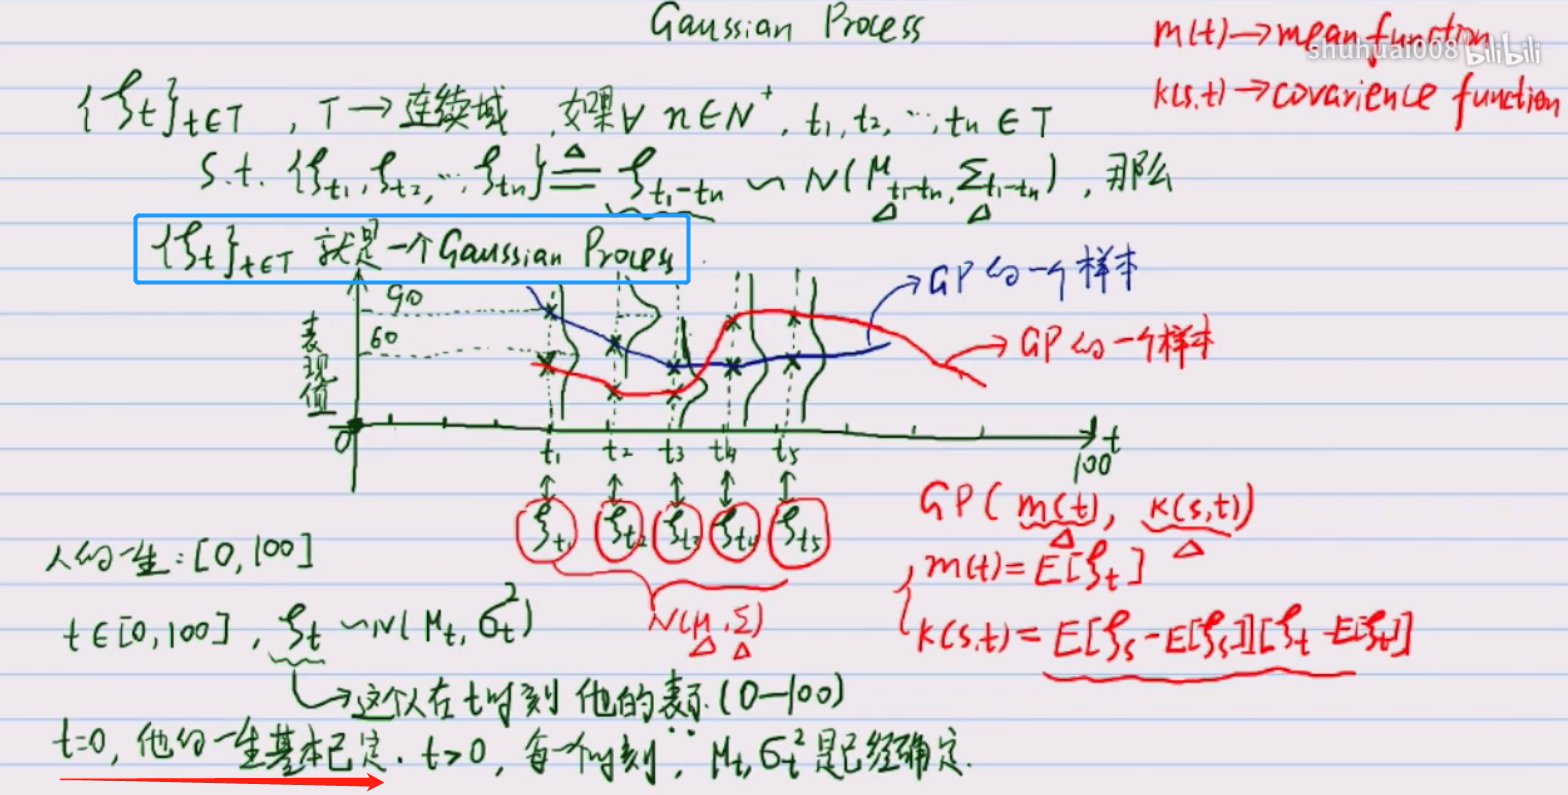 Gaussian Process
m(t)→mean function
shuhuai008 bilibili
k(s,t)→covarience function
{ξt}t∈T , T→连续域 , 如果∀ n∈N⁺, t1, t2, ⋯, tn ∈T
s.t. {ξt1, ξt2, ⋯, ξtn} ≜ ξt1-tn ~ N(μt1-tn, Σt1-tn) , 那么
{ξt}t∈T 就是一个Gaussian Process
GP的一个样本
GP的一个样本
表现值
90
60
0
t1 t2 t3 t4 t5
t
100
ξt1 ξt2 ξt3 ξt4 ξt5
N(μ, Σ)
GP(m(t), k(s,t))
m(t)=E[ξt]
k(s,t)=E[ξs-E[ξs]][ξt-E[ξt]]
人的一生:[0,100]
t∈[0,100] , ξt ~N(μt, σt²)
→这个人在t时刻 他的表现.(0—100)
t=0, 他的一生基本已定. t>0, 每一个时刻, μt, σt²是已经确定.